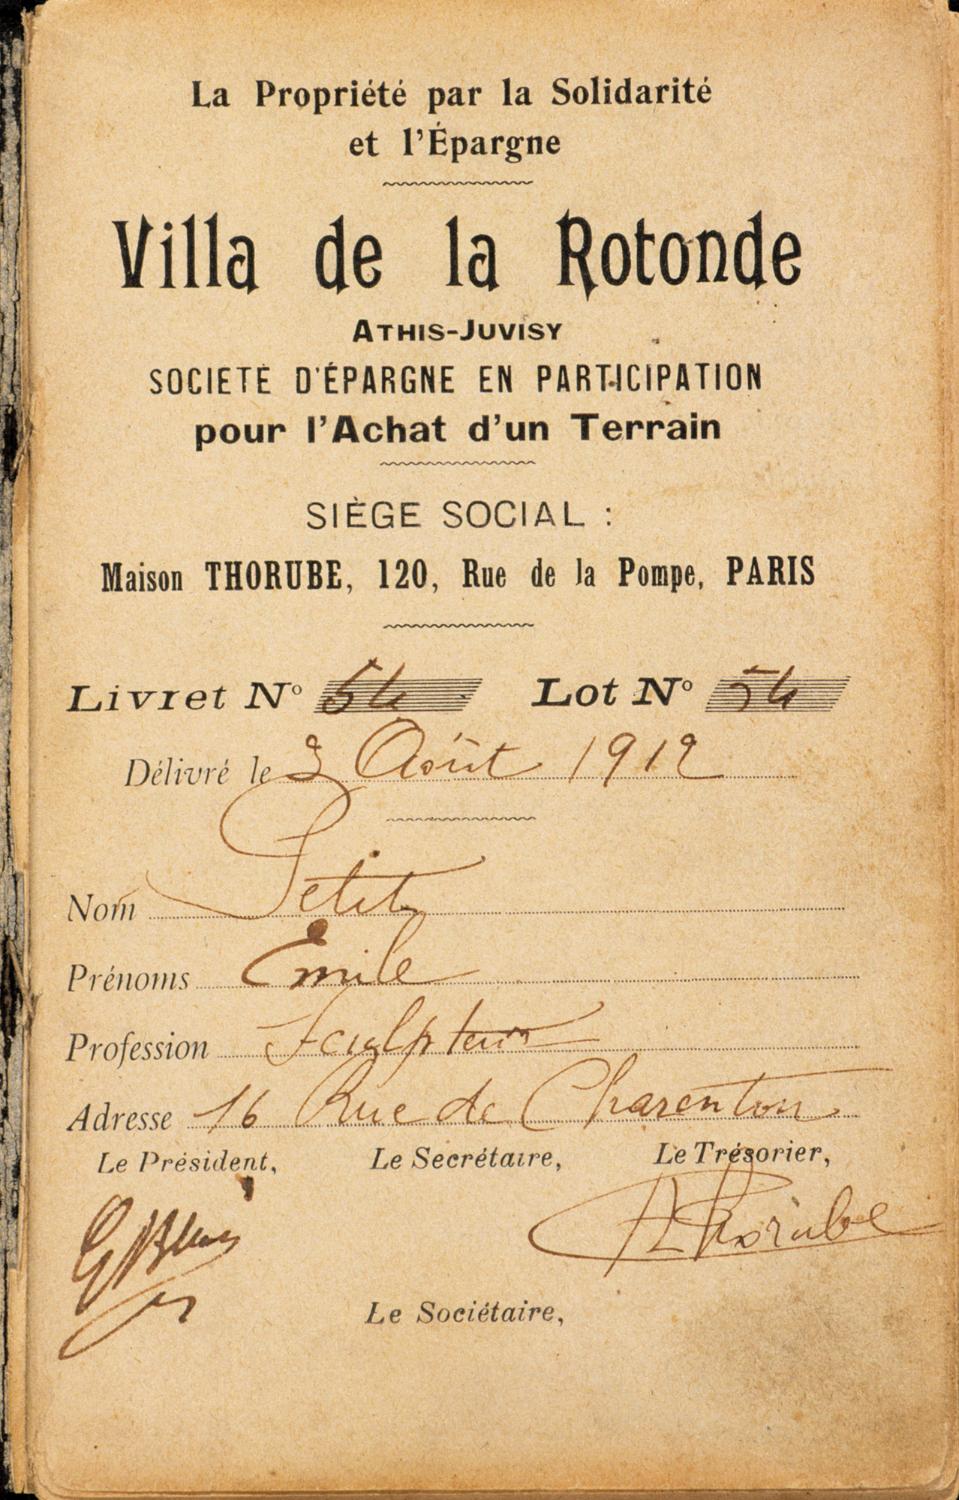 La Propriété par la Solidarité
et l'Épargne
Villa de la Rotonde
ATHIS-JUVISY
SOCIETÉ D'ÉPARGNE EN PARTICIPATION
pour l'Achat d'un Terrain
SIÈGE SOCIAL :
Maison THORUBE, 120, Rue de la Pompe, PARIS
Livret N° 54 Lot N° 54
Délivré le 3 Août 1912
Nom Petit
Prénoms Emile
Profession Sculpteur
Adresse 16 Rue de Charenton
Le Président, Le Secrétaire, Le Trésorier,
Thorube
Le Sociétaire,